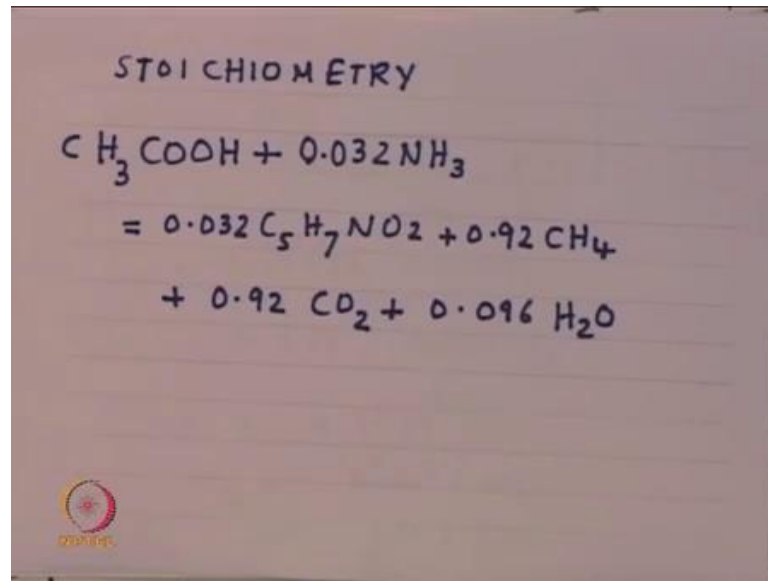 STOICHIOMETRY
CH₃COOH + 0.032NH₃
= 0.032 C₅H₇NO2 + 0.92 CH₄
+ 0.92 CO₂ + 0.096 H₂O